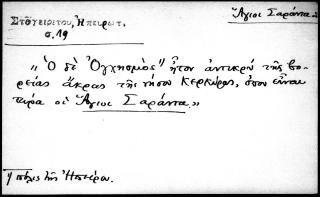 Στογειρίτου, Ἠπειρωτ.
Ἅγιοι Σαράντα
σ. 19
"Ὁ δὲ Ὀγχησμὸς" ἦτον ἀντικρὺ τῆς βο-
ρείας ἄκρας τῆς νήσου Κερκύρας, ὅπου εἶναι
τώρα οἱ Ἅγιοι Σαράντα.»
πόλις τῆς Ἠπείρου.